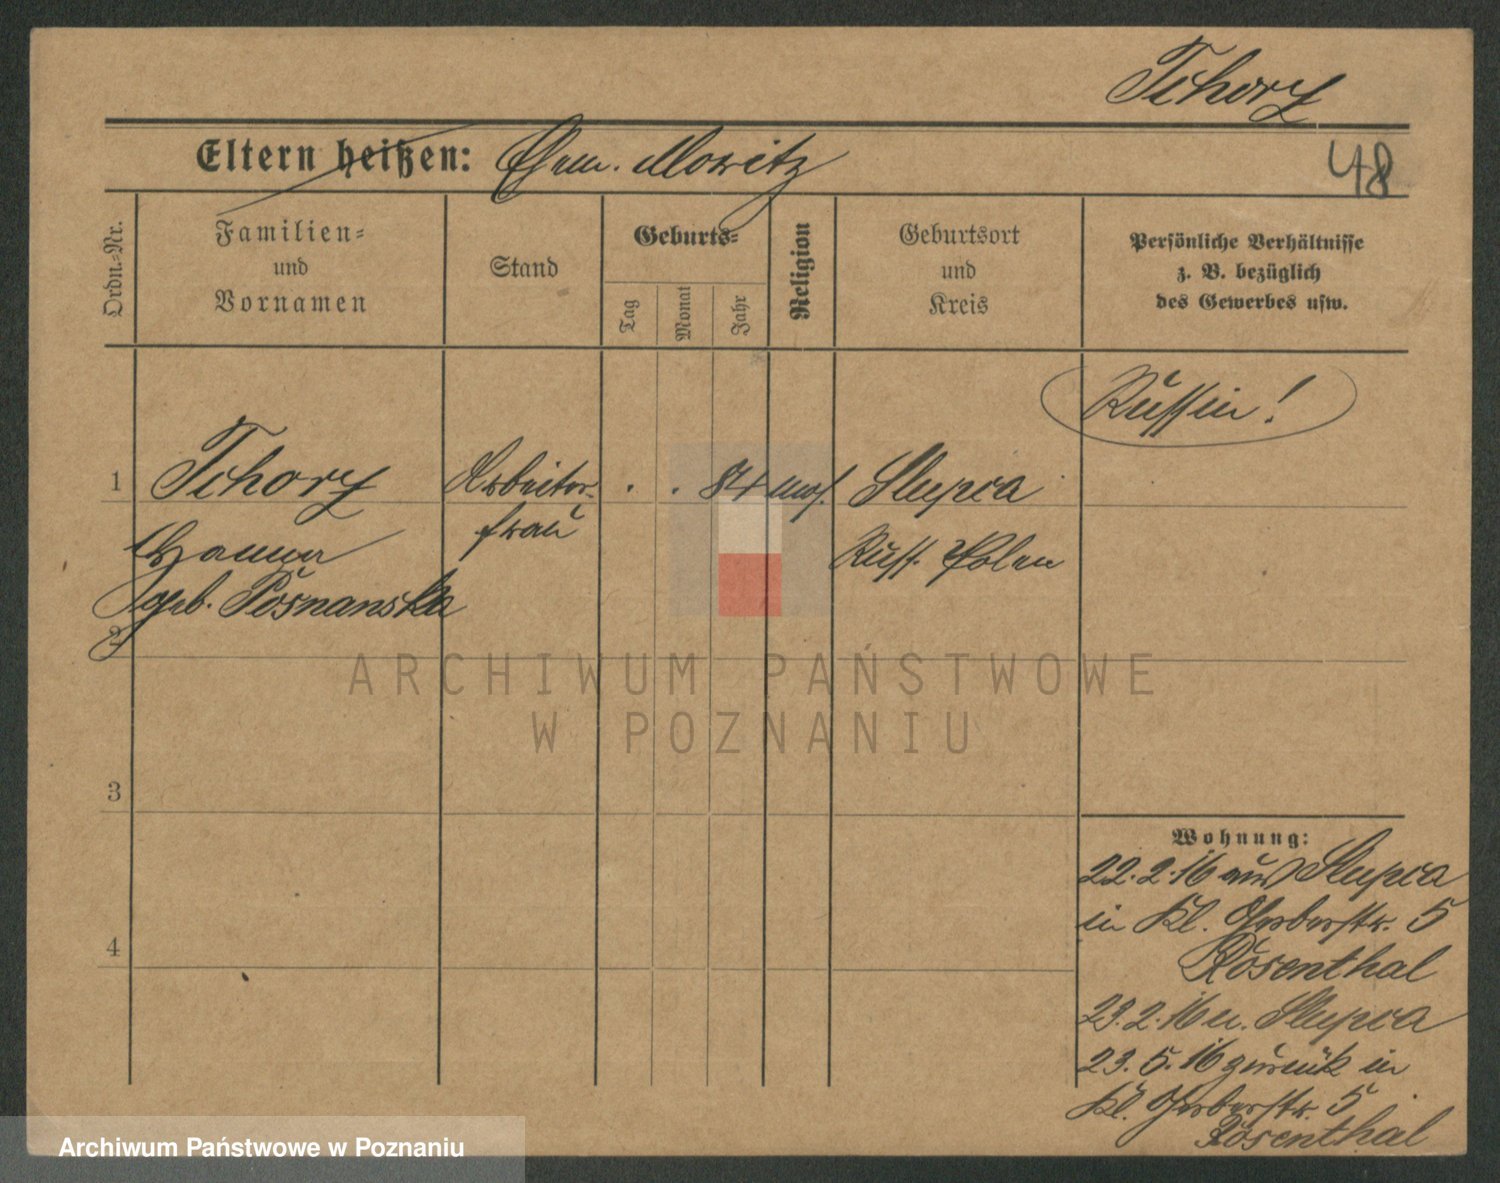 Tchorz
Eltern heißen: Ehem. Moritz
48
Ordn.-Nr.
Familien-
und
Vornamen
Stand
Geburts-
Tag
Monat
Jahr
Religion
Geburtsort
und
Kreis
Persönliche Verhältnisse
z. B. bezüglich
des Gewerbes usw.
Russin!
1 Tchorz Arbeiter- . . 84 mos. Slupca
frau
Hanna Russ. Polen
geb. Posnanska
2
ARCHIWUM PAŃSTWOWE
W POZNANIU
3
Wohnung:
22.2.16 aus Slupca
in Kl. Gerberstr. 5
4
Rosenthal
29.2.16 n. Slupca
23.5.16 zurück in
Kl. Gerberstr. 5
Rosenthal
Archiwum Państwowe w Poznaniu